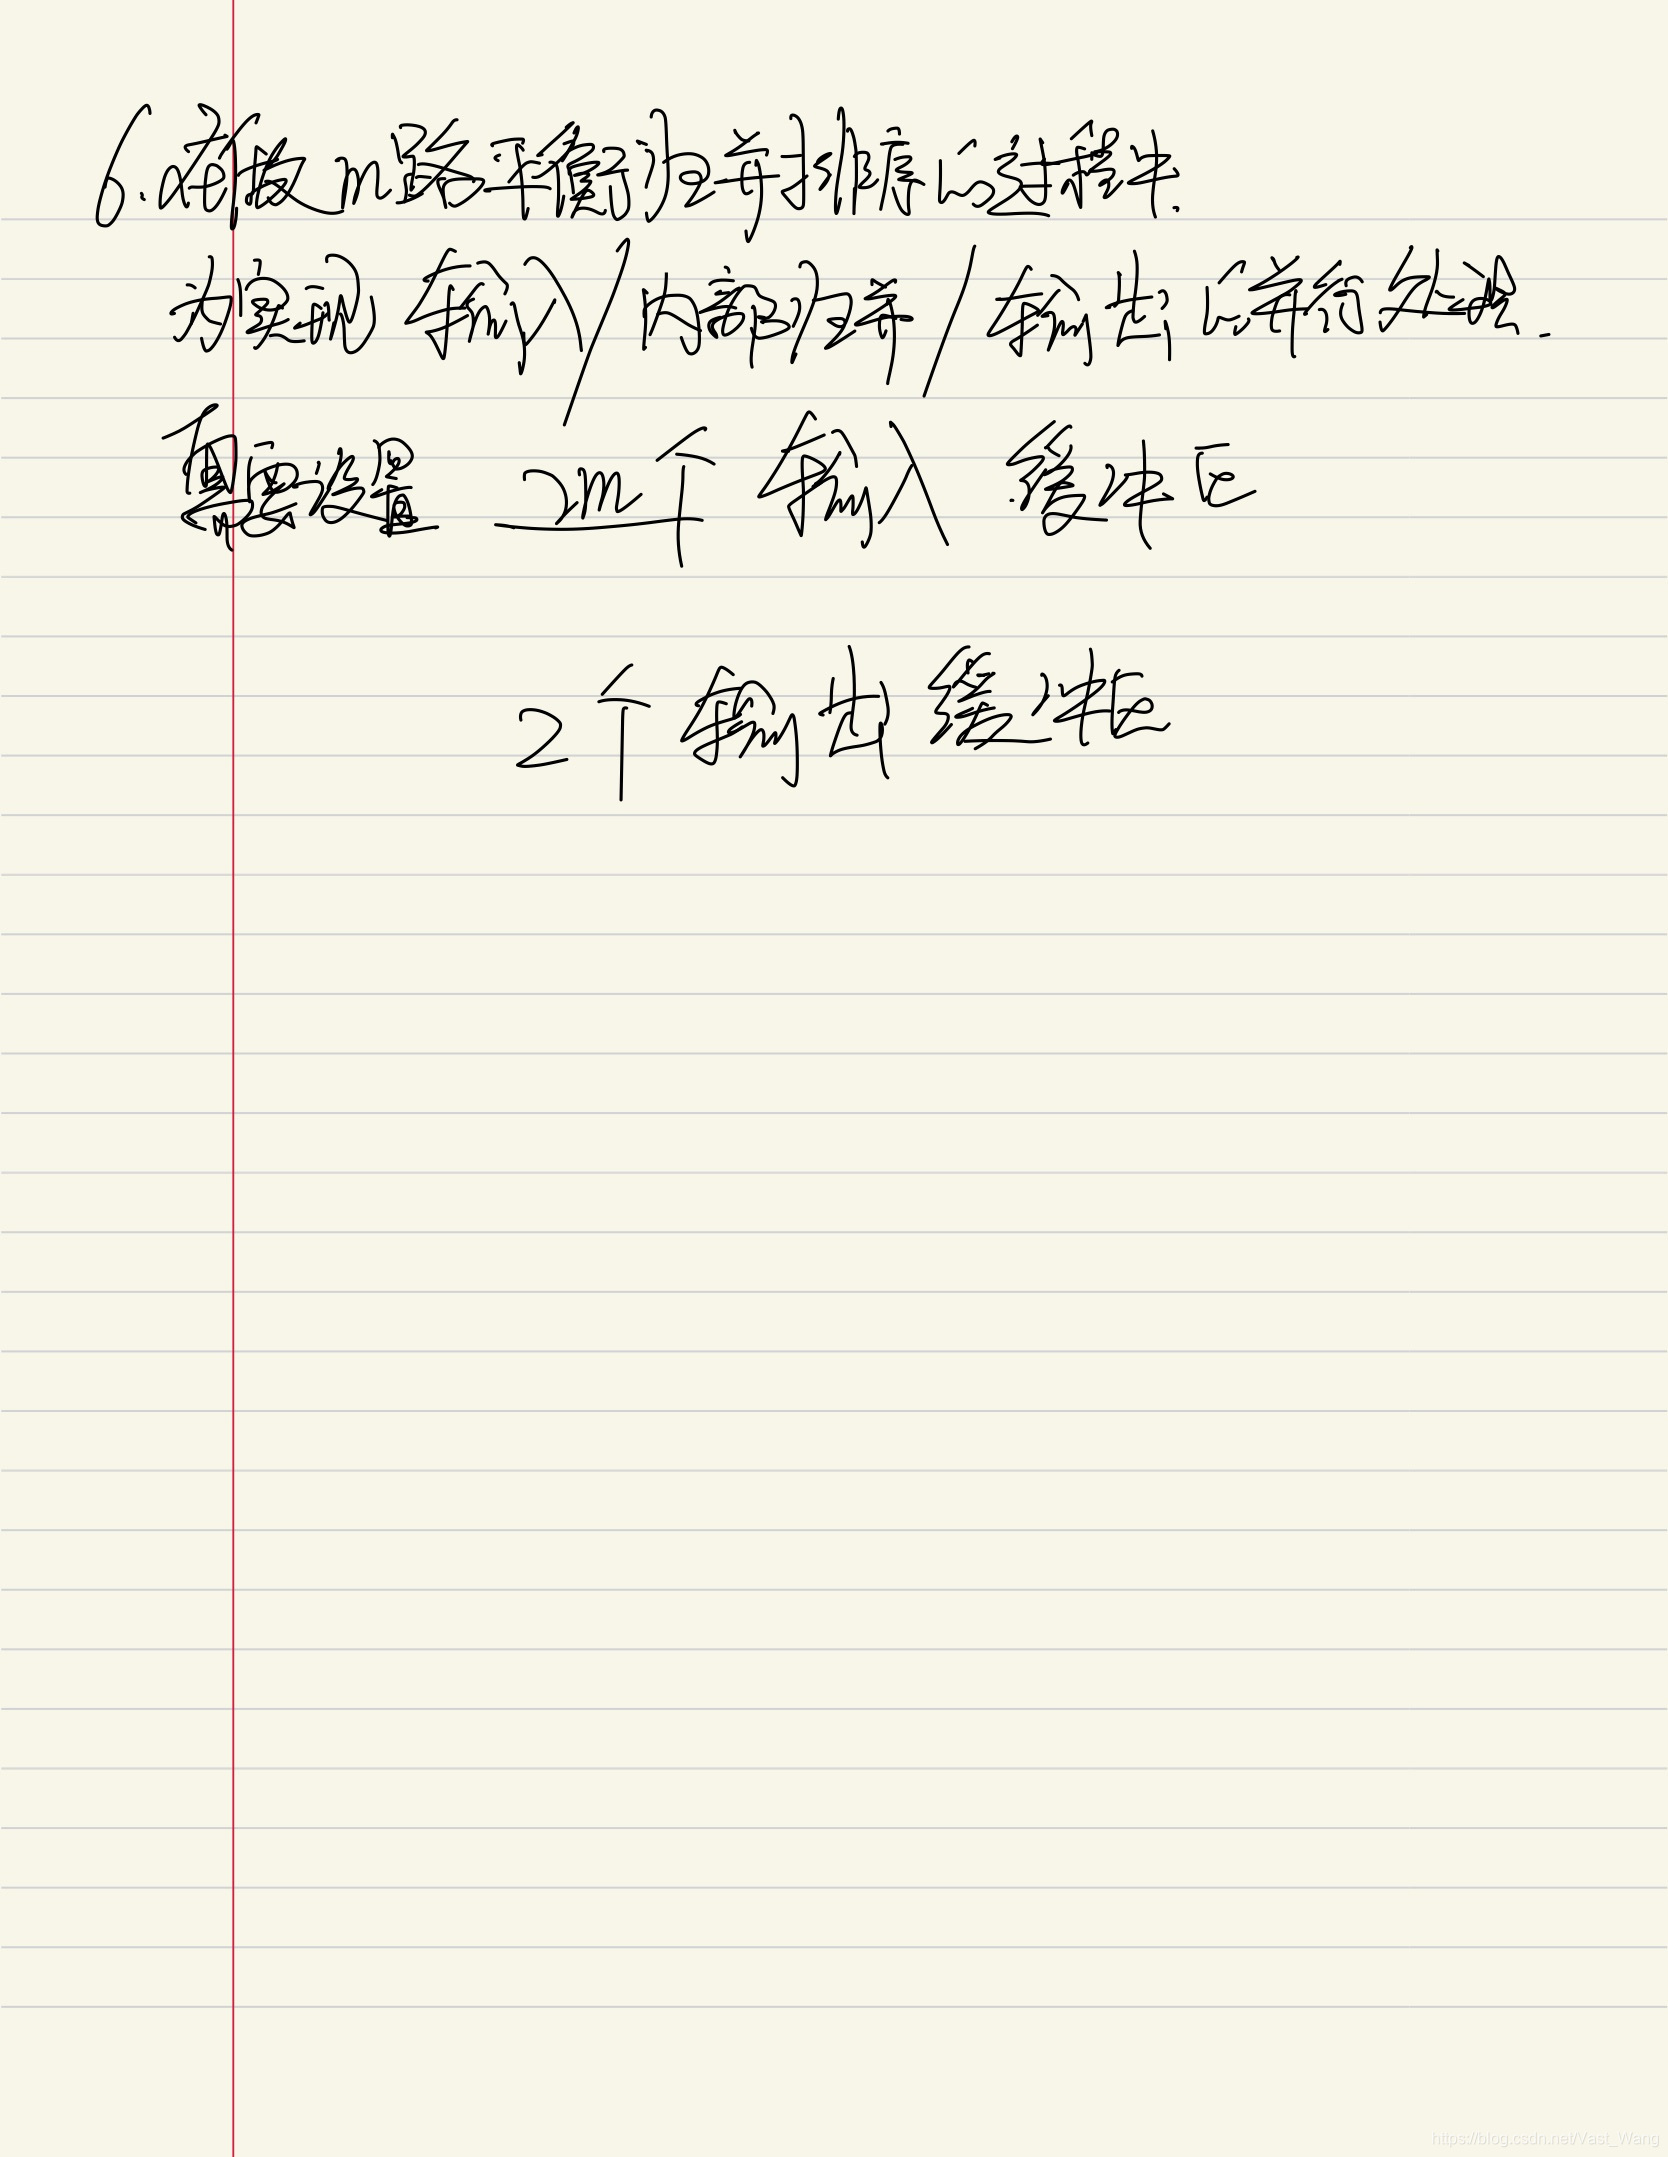 6.在做m路平衡归并排序的过程中.
为实现 输入/内部归并/输出的并行处理.
需要设置 2m个 输入 缓冲区
2个输出缓冲区
https://blog.csdn.net/Vast_Wang